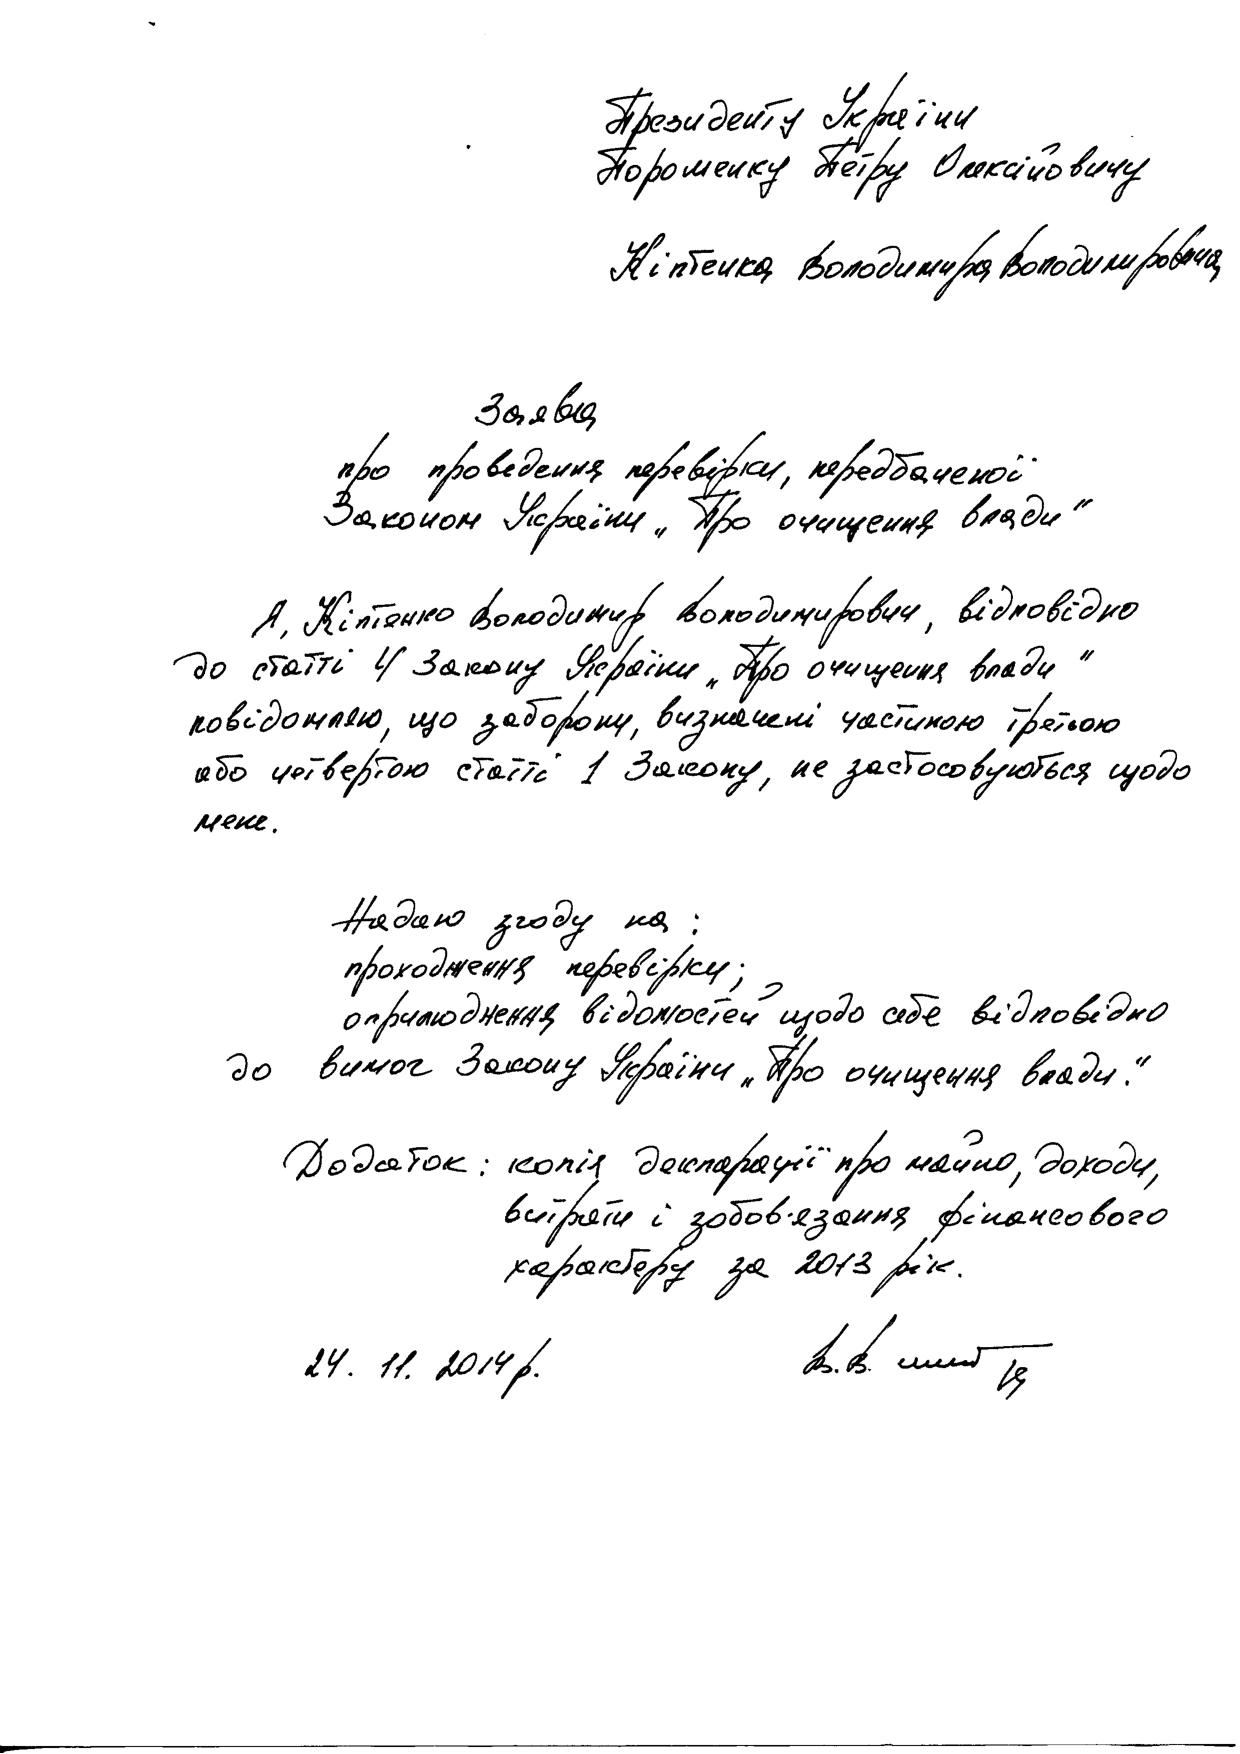 Президенту України
Порошенку Петру Олексійовичу
Кіптенка Володимира Володимировича
Заява
про проведення перевірки, передбаченої
Законом України „Про очищення влади"
Я, Кіптенко Володимир Володимирович, відповідно
до статті 4 Закону України „Про очищення влади"
повідомляю, що заборони, визначені частиною третьою
або четвертою статті 1 Закону, не застосовуються щодо
мене.
Надаю згоду на:
проходження перевірки;
оприлюднення відомостей щодо себе відповідно
до вимог Закону України „Про очищення влади."
Додаток: копія декларації про майно, доходи,
витрати і зобов'язання фінансового
характеру за 2013 рік.
24. 11. 2014 р. В.В.